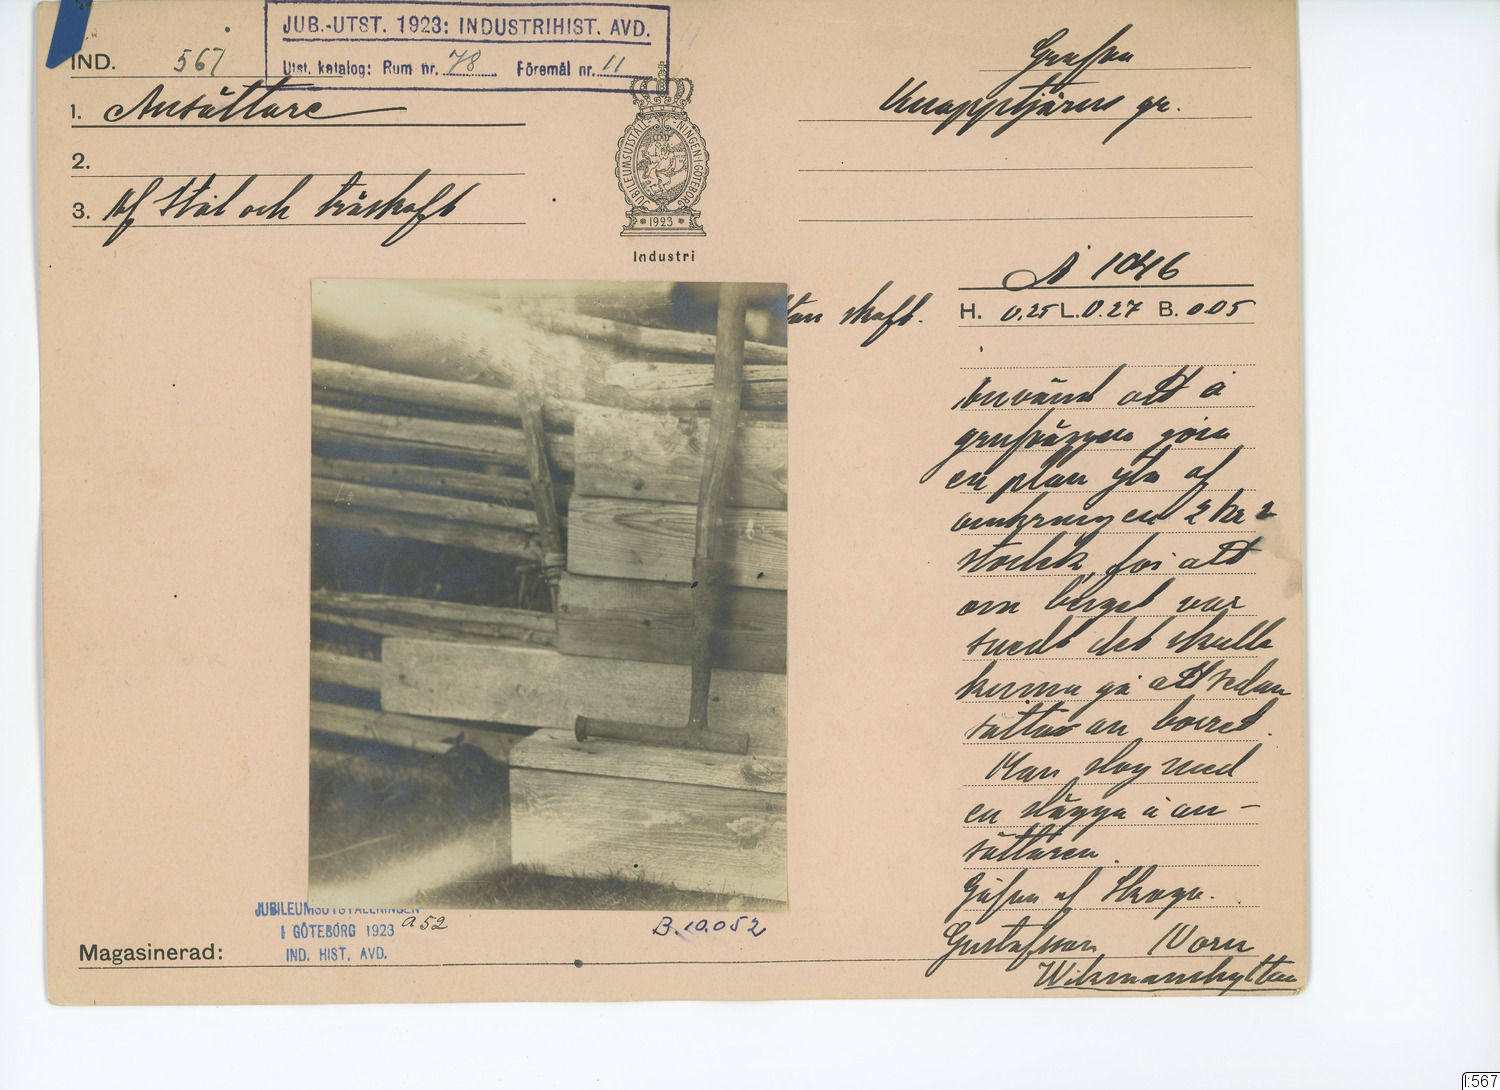 JUB.-UTST. 1923: INDUSTRIHIST. AVD.
Utst. katalog: Rum nr. 78 Föremål nr. 11
IND. 567
1. Ansättare
2.
3. Af Stål och träskaft
JUBILEUMSUTSTÄLLNINGEN I GÖTEBORG
1923
Industri
Knapptjärns gr.
A 1046
H. 0.25 L. 0.27 B. 0.05
utan skaft.
Använd att å
grufväggen göra
en plan yta af
omkring en 2 kr
stoclek, för att
om berget var
snedt det skulle
kunna gå att sedan
sättas an borret.
Man slog med
en slägga å an-
sättaren.
Gåfva af
Gustafsson
Wikmanshyttan
JUBILEUMSUTSTÄLLNINGEN
I GÖTEBORG 1923
IND. HIST. AVD.
a 52
B. 10.052
Magasinerad:
I:567